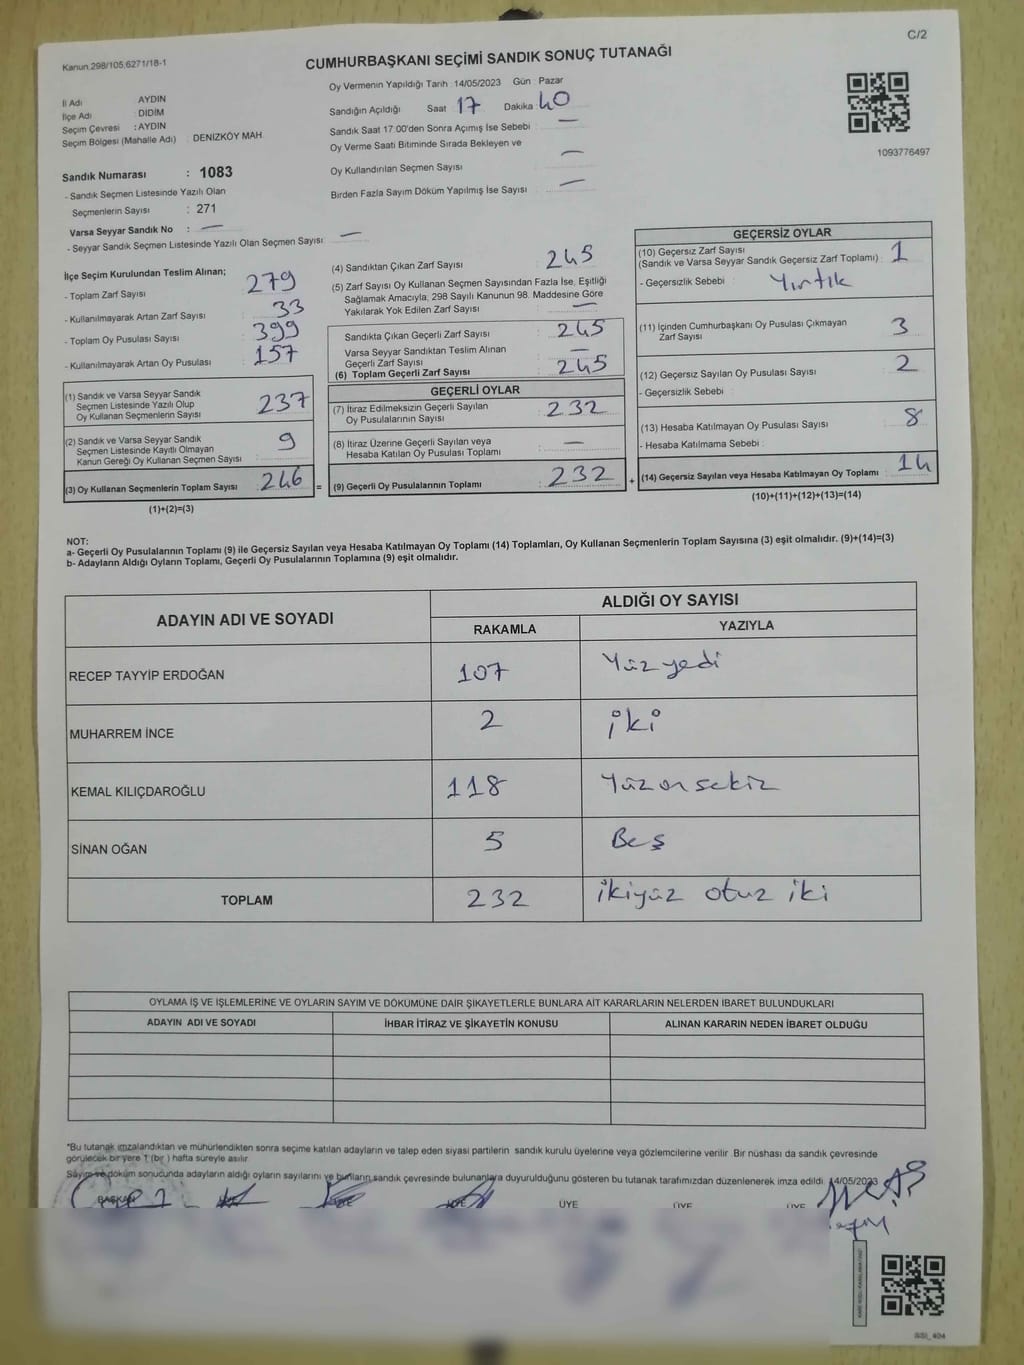 C/2
Kanun 298/105,6271/18-1
CUMHURBAŞKANI SEÇİMİ SANDIK SONUÇ TUTANAĞI
İl Adı AYDIN
İlçe Adı DİDİM
Seçim Çevresi : AYDIN
Seçim Bölgesi (Mahalle Adı) : DENİZKÖY MAH.
Sandık Numarası : 1083
- Sandık Seçmen Listesinde Yazılı Olan
Seçmenlerin Sayısı : 271
Varsa Seyyar Sandık No : —
- Seyyar Sandık Seçmen Listesinde Yazılı Olan Seçmen Sayısı: —
Oy Vermenin Yapıldığı Tarih : 14/05/2023 Gün : Pazar
Sandığın Açıldığı Saat 17 Dakika 40
Sandık Saat 17:00'den Sonra Açımış İse Sebebi : —
Oy Verme Saati Bitiminde Sırada Bekleyen ve
Oy Kullandırılan Seçmen Sayısı —
Birden Fazla Sayım Döküm Yapılmış İse Sayısı —
1093776497
İlçe Seçim Kurulundan Teslim Alınan;
- Toplam Zarf Sayısı 279
- Kullanılmayarak Artan Zarf Sayısı : 33
- Toplam Oy Pusulası Sayısı 399
- Kullanılmayarak Artan Oy Pusulası 157
(1) Sandık ve Varsa Seyyar Sandık
Seçmen Listesinde Yazılı Olup
Oy Kullanan Seçmenlerin Sayısı 237
(2) Sandık ve Varsa Seyyar Sandık
Seçmen Listesinde Kayıtlı Olmayan
Kanun Gereği Oy Kullanan Seçmen Sayısı 9
(3) Oy Kullanan Seçmenlerin Toplam Sayısı : 246 =
(1)+(2)=(3)
(4) Sandıktan Çıkan Zarf Sayısı : 245
(5) Zarf Sayısı Oy Kullanan Seçmen Sayısından Fazla İse, Eşitliği
Sağlamak Amacıyla; 298 Sayılı Kanunun 98. Maddesine Göre
Yakılarak Yok Edilen Zarf Sayısı : —
Sandıkta Çıkan Geçerli Zarf Sayısı : 245
Varsa Seyyar Sandıktan Teslim Alınan
Geçerli Zarf Sayısı : —
(6) Toplam Geçerli Zarf Sayısı : 245
GEÇERLİ OYLAR
(7) İtiraz Edilmeksizin Geçerli Sayılan
Oy Pusulalarının Sayısı : 232
(8) İtiraz Üzerine Geçerli Sayılan veya
Hesaba Katılan Oy Pusulası Toplamı : —
(9) Geçerli Oy Pusulalarının Toplamı : 232 +
GEÇERSİZ OYLAR
(10) Geçersiz Zarf Sayısı
(Sandık ve Varsa Seyyar Sandık Geçersiz Zarf Toplamı) : 1
- Geçersizlik Sebebi : Yırtık
(11) İçinden Cumhurbaşkanı Oy Pusulası Çıkmayan
Zarf Sayısı : 3
(12) Geçersiz Sayılan Oy Pusulası Sayısı : 2
- Geçersizlik Sebebi :
(13) Hesaba Katılmayan Oy Pusulası Sayısı : 8
- Hesaba Katılmama Sebebi :
(14) Geçersiz Sayılan veya Hesaba Katılmayan Oy Toplamı : 14
(10)+(11)+(12)+(13)=(14)
NOT:
a- Geçerli Oy Pusulalarının Toplamı (9) ile Geçersiz Sayılan veya Hesaba Katılmayan Oy Toplamı (14) Toplamları, Oy Kullanan Seçmenlerin Toplam Sayısına (3) eşit olmalıdır. (9)+(14)=(3)
b- Adayların Aldığı Oyların Toplamı, Geçerli Oy Pusulalarının Toplamına (9) eşit olmalıdır.
ADAYIN ADI VE SOYADI ALDIĞI OY SAYISI
RAKAMLA YAZIYLA
RECEP TAYYİP ERDOĞAN 107 Yüz yedi
MUHARREM İNCE 2 iki
KEMAL KILIÇDAROĞLU 118 Yüz on sekiz
SİNAN OĞAN 5 Beş
TOPLAM 232 ikiyüz otuz iki
OYLAMA İŞ VE İŞLEMLERİNE VE OYLARIN SAYIM VE DÖKÜMÜNE DAİR ŞİKAYETLERLE BUNLARA AİT KARARLARIN NELERDEN İBARET BULUNDUKLARI
ADAYIN ADI VE SOYADI İHBAR İTİRAZ VE ŞİKAYETİN KONUSU ALINAN KARARIN NEDEN İBARET OLDUĞU
*Bu tutanak imzalandıktan ve mühürlendikten sonra seçime katılan adayların ve talep eden siyasi partilerin sandık kurulu üyelerine veya gözlemcilerine verilir .Bir nüshası da sandık çevresinde
görülecek bir yere 1 (bir ) hafta süreyle asılır.
Sayım ve döküm sonucunda adayların aldığı oyların sayılarını ve bunların sandık çevresinde bulunanlara duyurulduğunu gösteren bu tutanak tarafımızdan düzenlenerek imza edildi. 14/05/2023
BAŞKAN ÜYE ÜYE ÜYE ÜYE
SSI_404